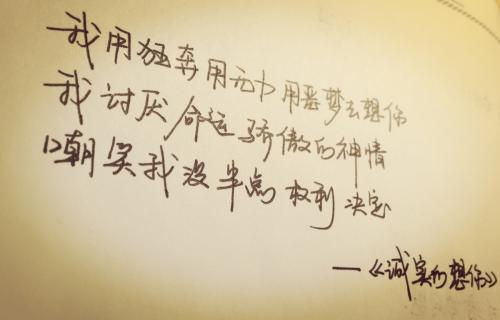 我用狂奔用无力用恶梦去想你
我讨厌命运骄傲的神情
口朝笑我没半点权利决定
—《诚实的想你》